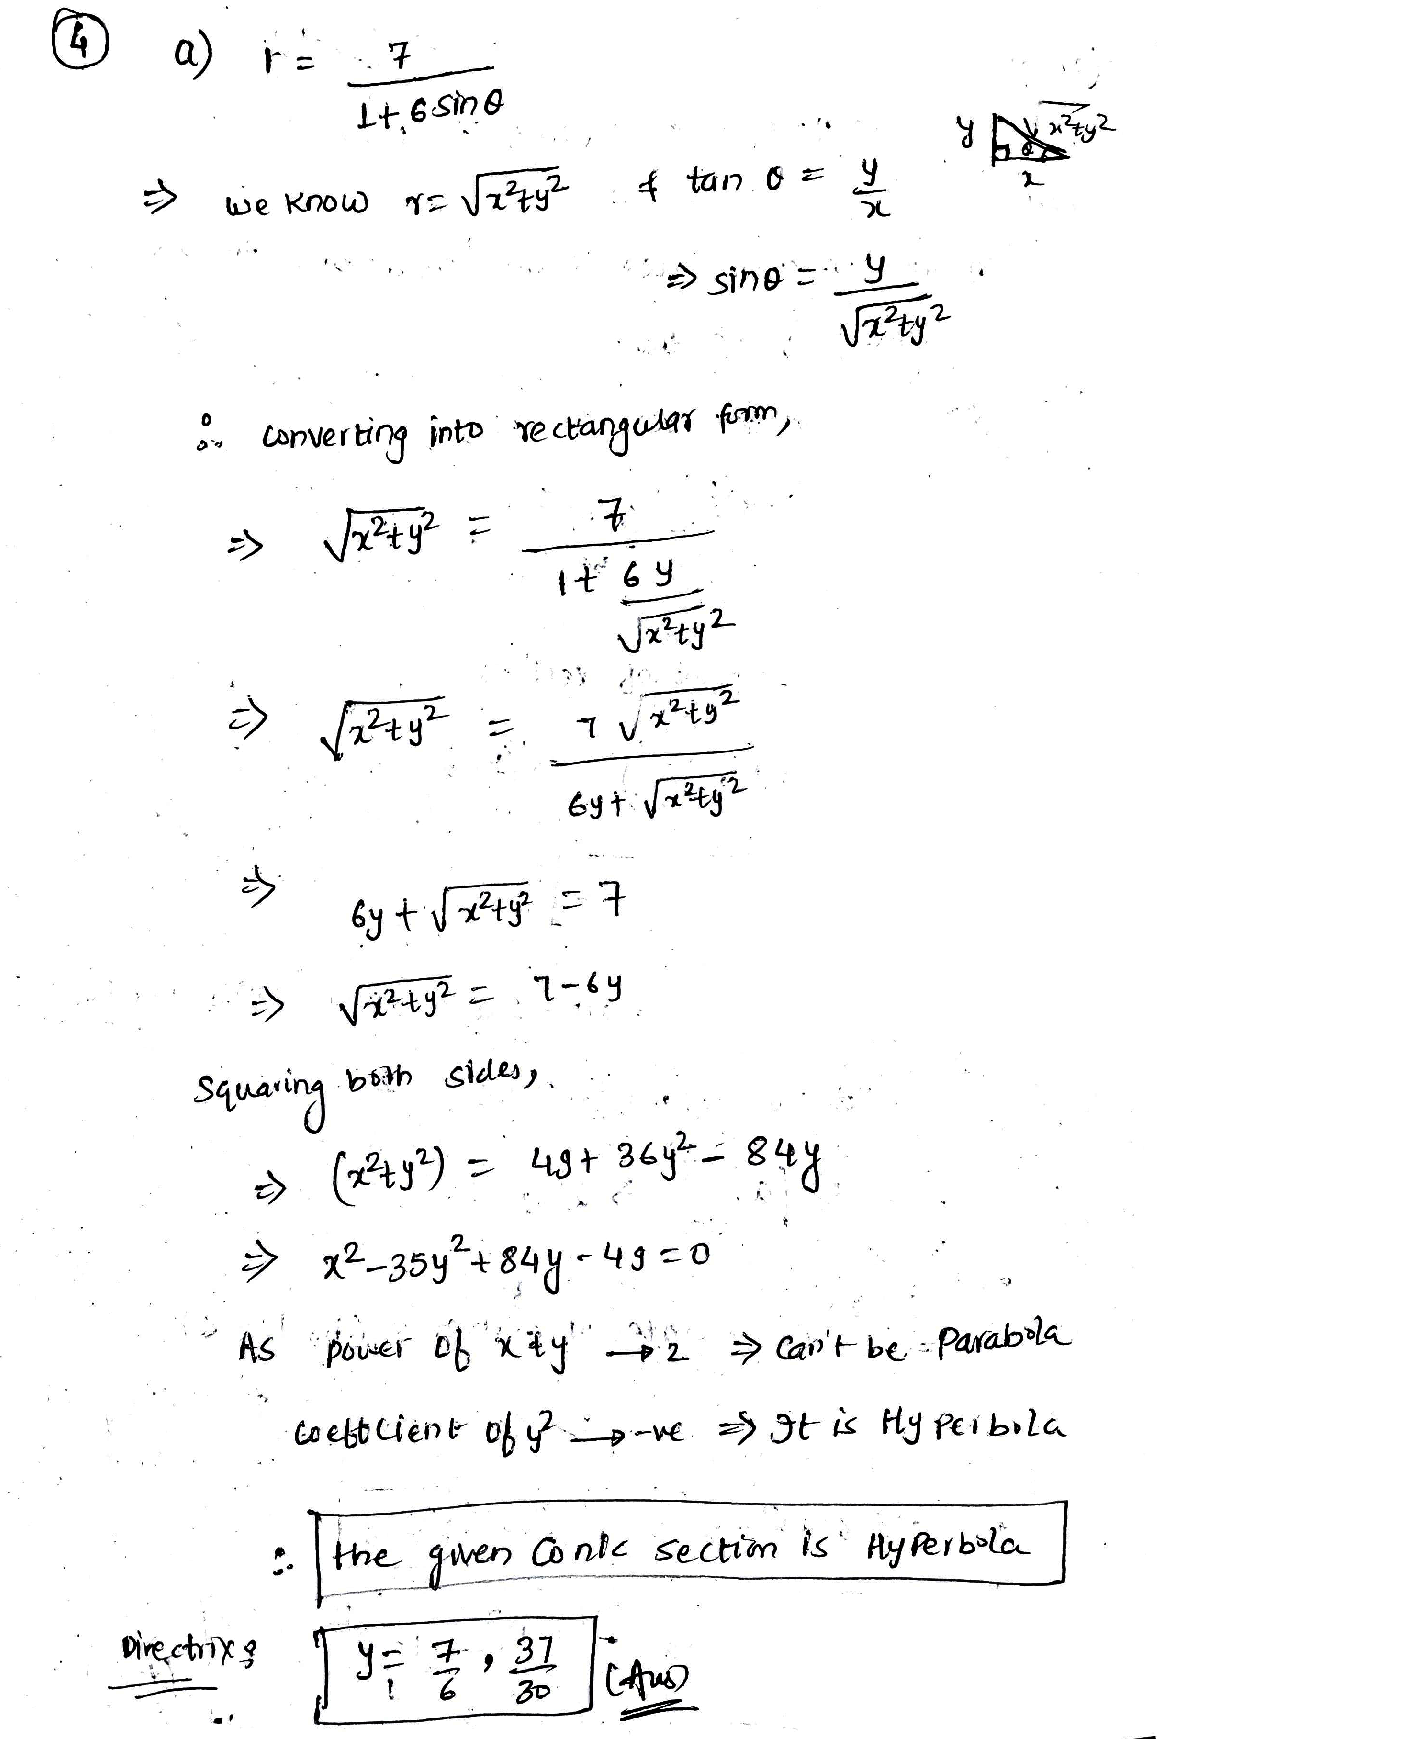 ④ a) r = 7 / (1+6sinθ)
⇒ we know r = √(x²+y²) & tan θ = y/x
y √(x²+y²) θ x
⇒ sinθ = y / √(x²+y²)
∴ converting into rectangular form,
⇒ √(x²+y²) = 7 / (1+ 6y/√(x²+y²))
⇒ √(x²+y²) = 7√(x²+y²) / (6y+√(x²+y²))
⇒ 6y + √(x²+y²) = 7
⇒ √(x²+y²) = 7-6y
Squaring both sides,
⇒ (x²+y²) = 49+36y²-84y
⇒ x²-35y²+84y-49=0
As power of x & y → 2 ⇒ can't be Parabola
coefficient of y² → -ve ⇒ It is Hyperbola
∴ the given Conic section is Hyperbola
Directrix: y = 7/6, 37/30 (Ans)